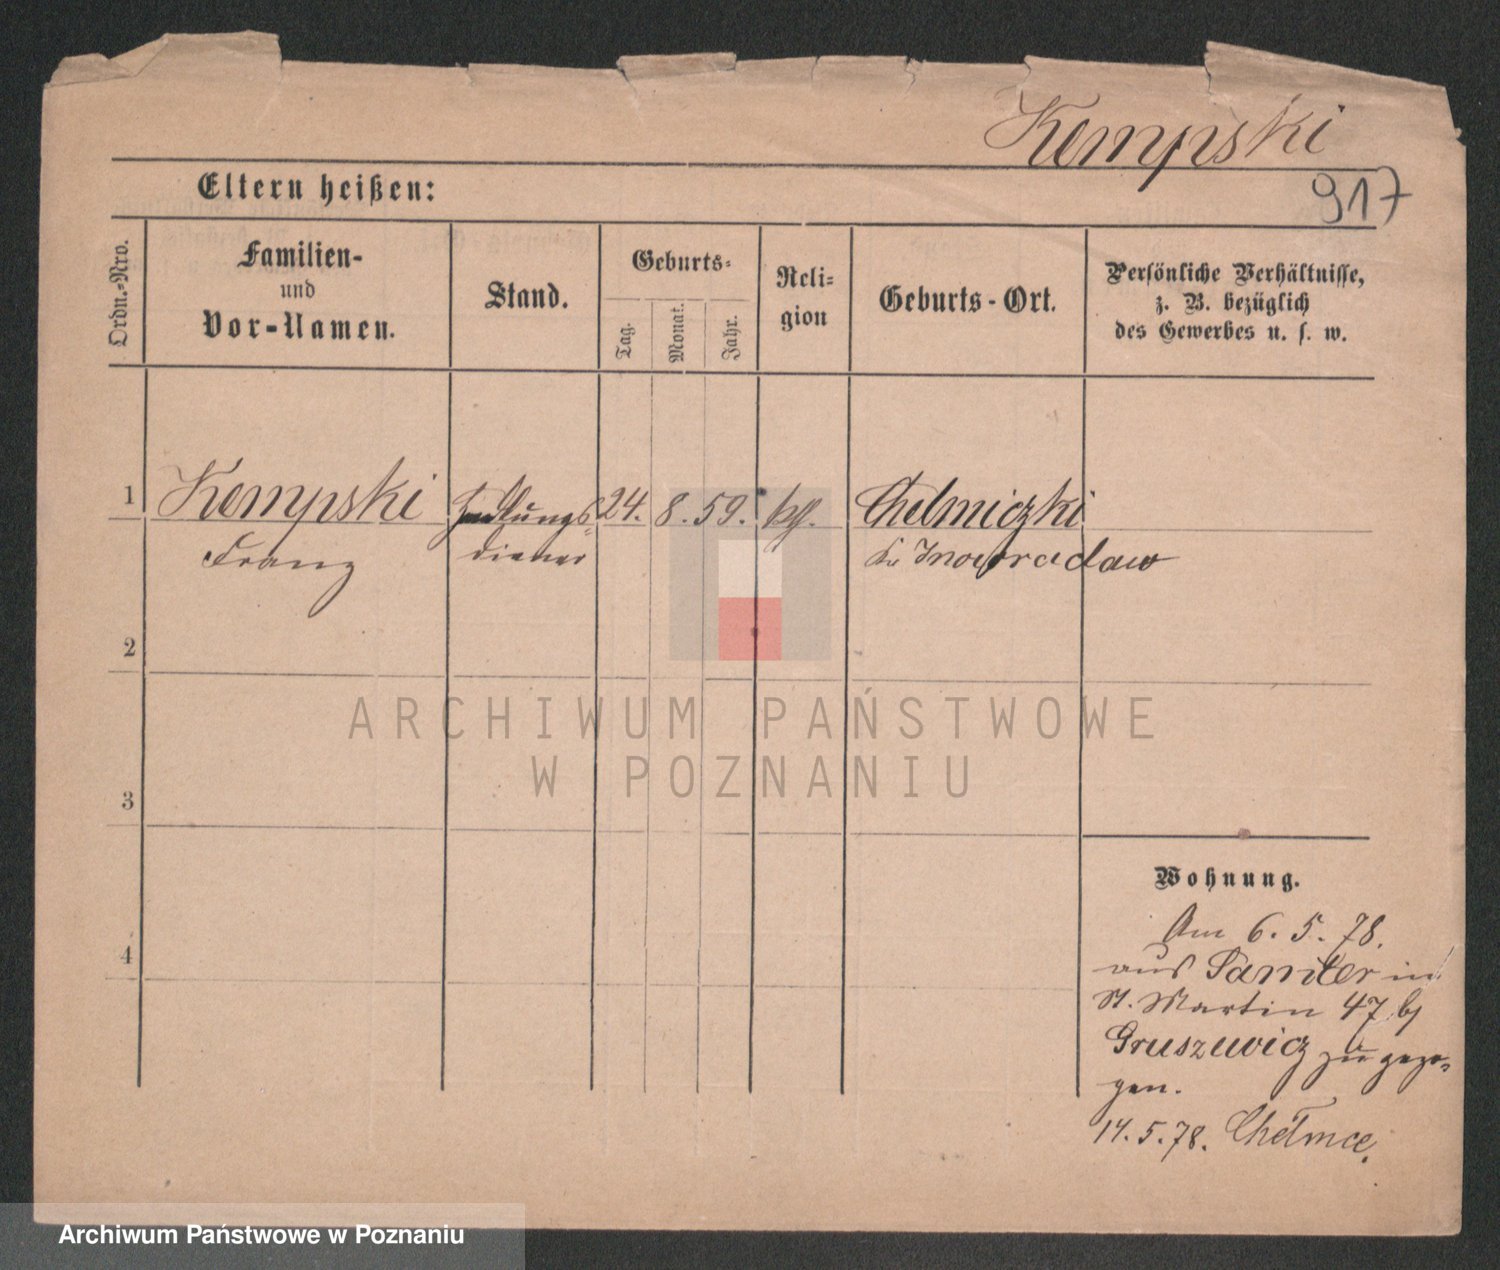 Kempski
917
Eltern heißen:
Ordn.-Nro.
Familien-
und
Vor-Namen.
Stand.
Geburts-
Tag.
Monat.
Jahr.
Reli-
gion
Geburts-Ort.
Persönliche Verhältnisse,
z. B. bezüglich
des Gewerbes u. s. w.
1 Kempski Handlungs- 24. 8. 59. Chelmiczki
Franz diener Kr Inowraclaw
2
ARCHIWUM PAŃSTWOWE
W POZNANIU
3
Wohnung.
Am 6. 5. 78.
aus Samter in
4
St. Martin 47 b/
Gruszewicz zu gezo-
gen.
14. 5. 78. Chełmce.
Archiwum Państwowe w Poznaniu